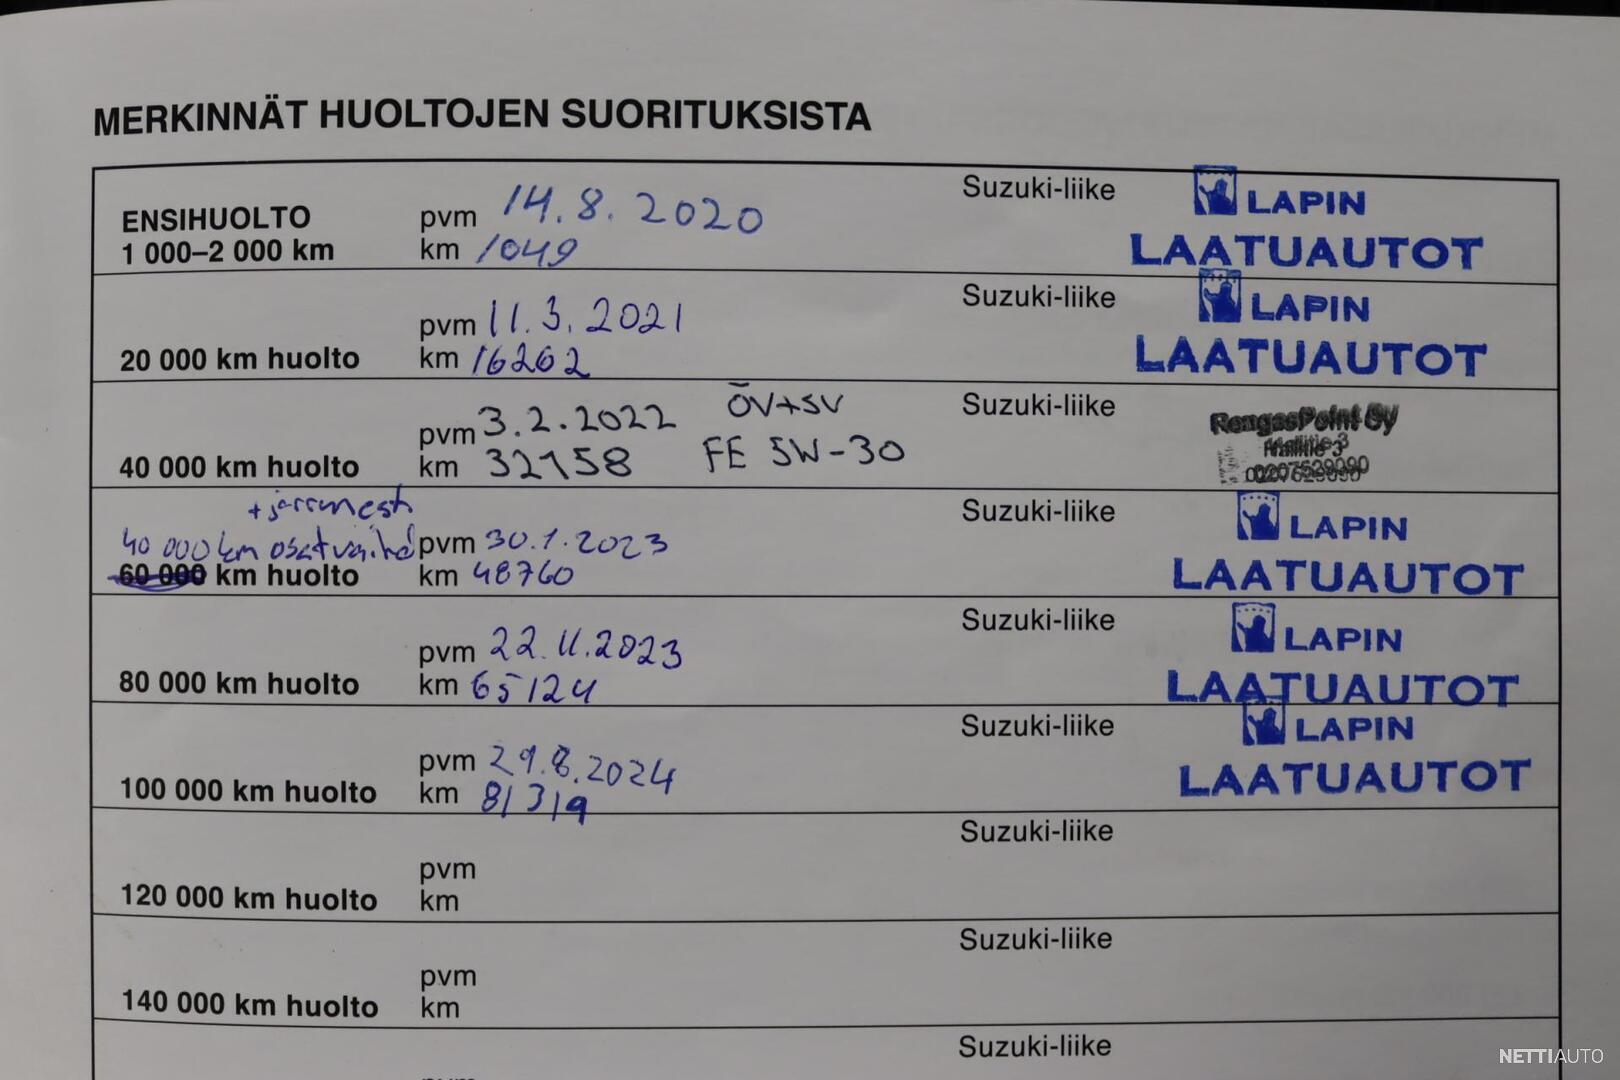 MERKINNÄT HUOLTOJEN SUORITUKSISTA
ENSIHUOLTO
1 000–2 000 km
pvm 14.8.2020
km 1049
Suzuki-liike
LAPIN
LAATUAUTOT
20 000 km huolto
pvm 11.3.2021
km 16262
Suzuki-liike
LAPIN
LAATUAUTOT
40 000 km huolto
pvm 3.2.2022
km 32158
ÖV+SV
FE 5W-30
Suzuki-liike
RengasPoint Oy
+ jarrunest
40 000 km osat vaihd
60 000 km huolto
pvm 30.1.2023
km 48760
Suzuki-liike
LAPIN
LAATUAUTOT
80 000 km huolto
pvm 22.11.2023
km 65124
Suzuki-liike
LAPIN
LAATUAUTOT
100 000 km huolto
pvm 29.8.2024
km 81319
Suzuki-liike
LAPIN
LAATUAUTOT
120 000 km huolto
pvm
km
Suzuki-liike
140 000 km huolto
pvm
km
Suzuki-liike
Suzuki-liike
NETTIAUTO